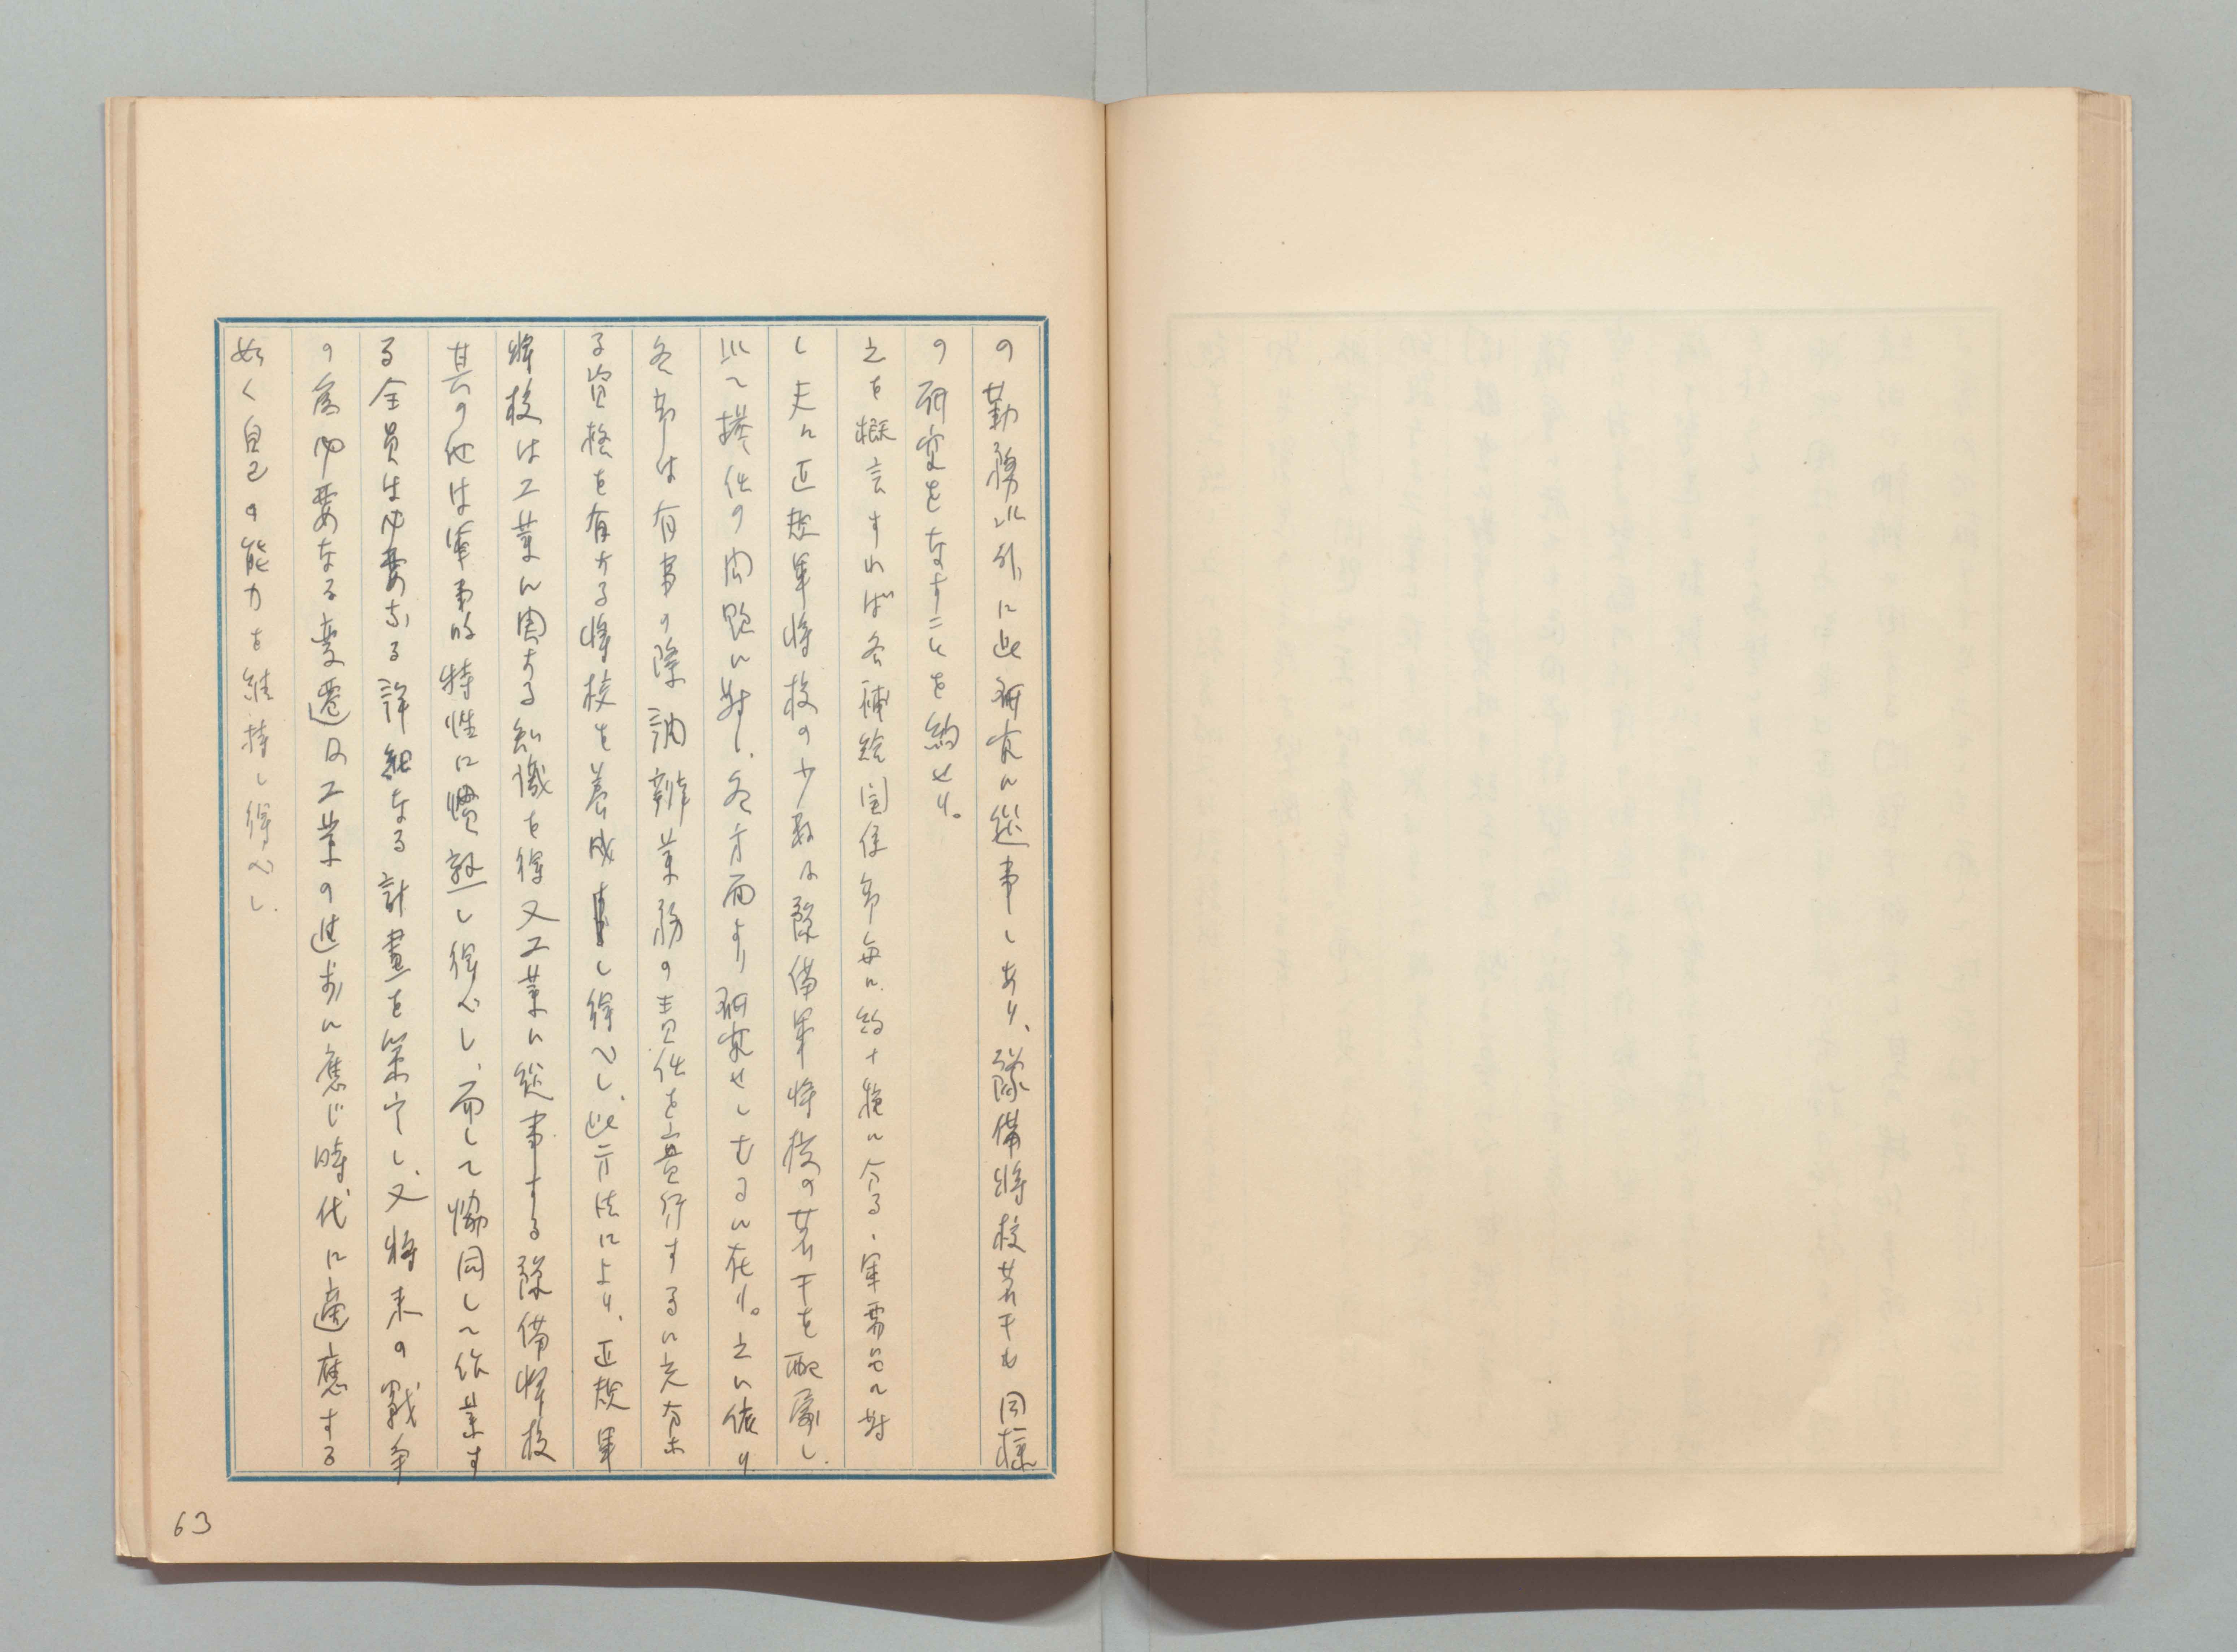 の勤務以外に此研究に從事しあり、豫備將校若干も同樣
の研究をなすことを約せり。
之を概言すれば各補給關係部毎に約十種に分る、軍需品に對
し夫に正規軍將校の少數及豫備軍將校の若干を配属し
以て擔任の問題に対し、各方面より研究せしむるに在り。之に依り
各部は有事の際調辨業務の責任を實行するに充分な
る資格を有する將校を養成し得べし、此方法により、正規軍
將校は工業に関する知識を得又工業に從事する豫備將校
其の他は軍事的特性に慣熟し得べし、而して協同して作業す
る全員は必要なる詳細なる計畫を策定し、又將来の戰争
の為必要なる變遷及工業の進歩に應じ時代に適應する
如く自己の能力を維持し得べし.
63